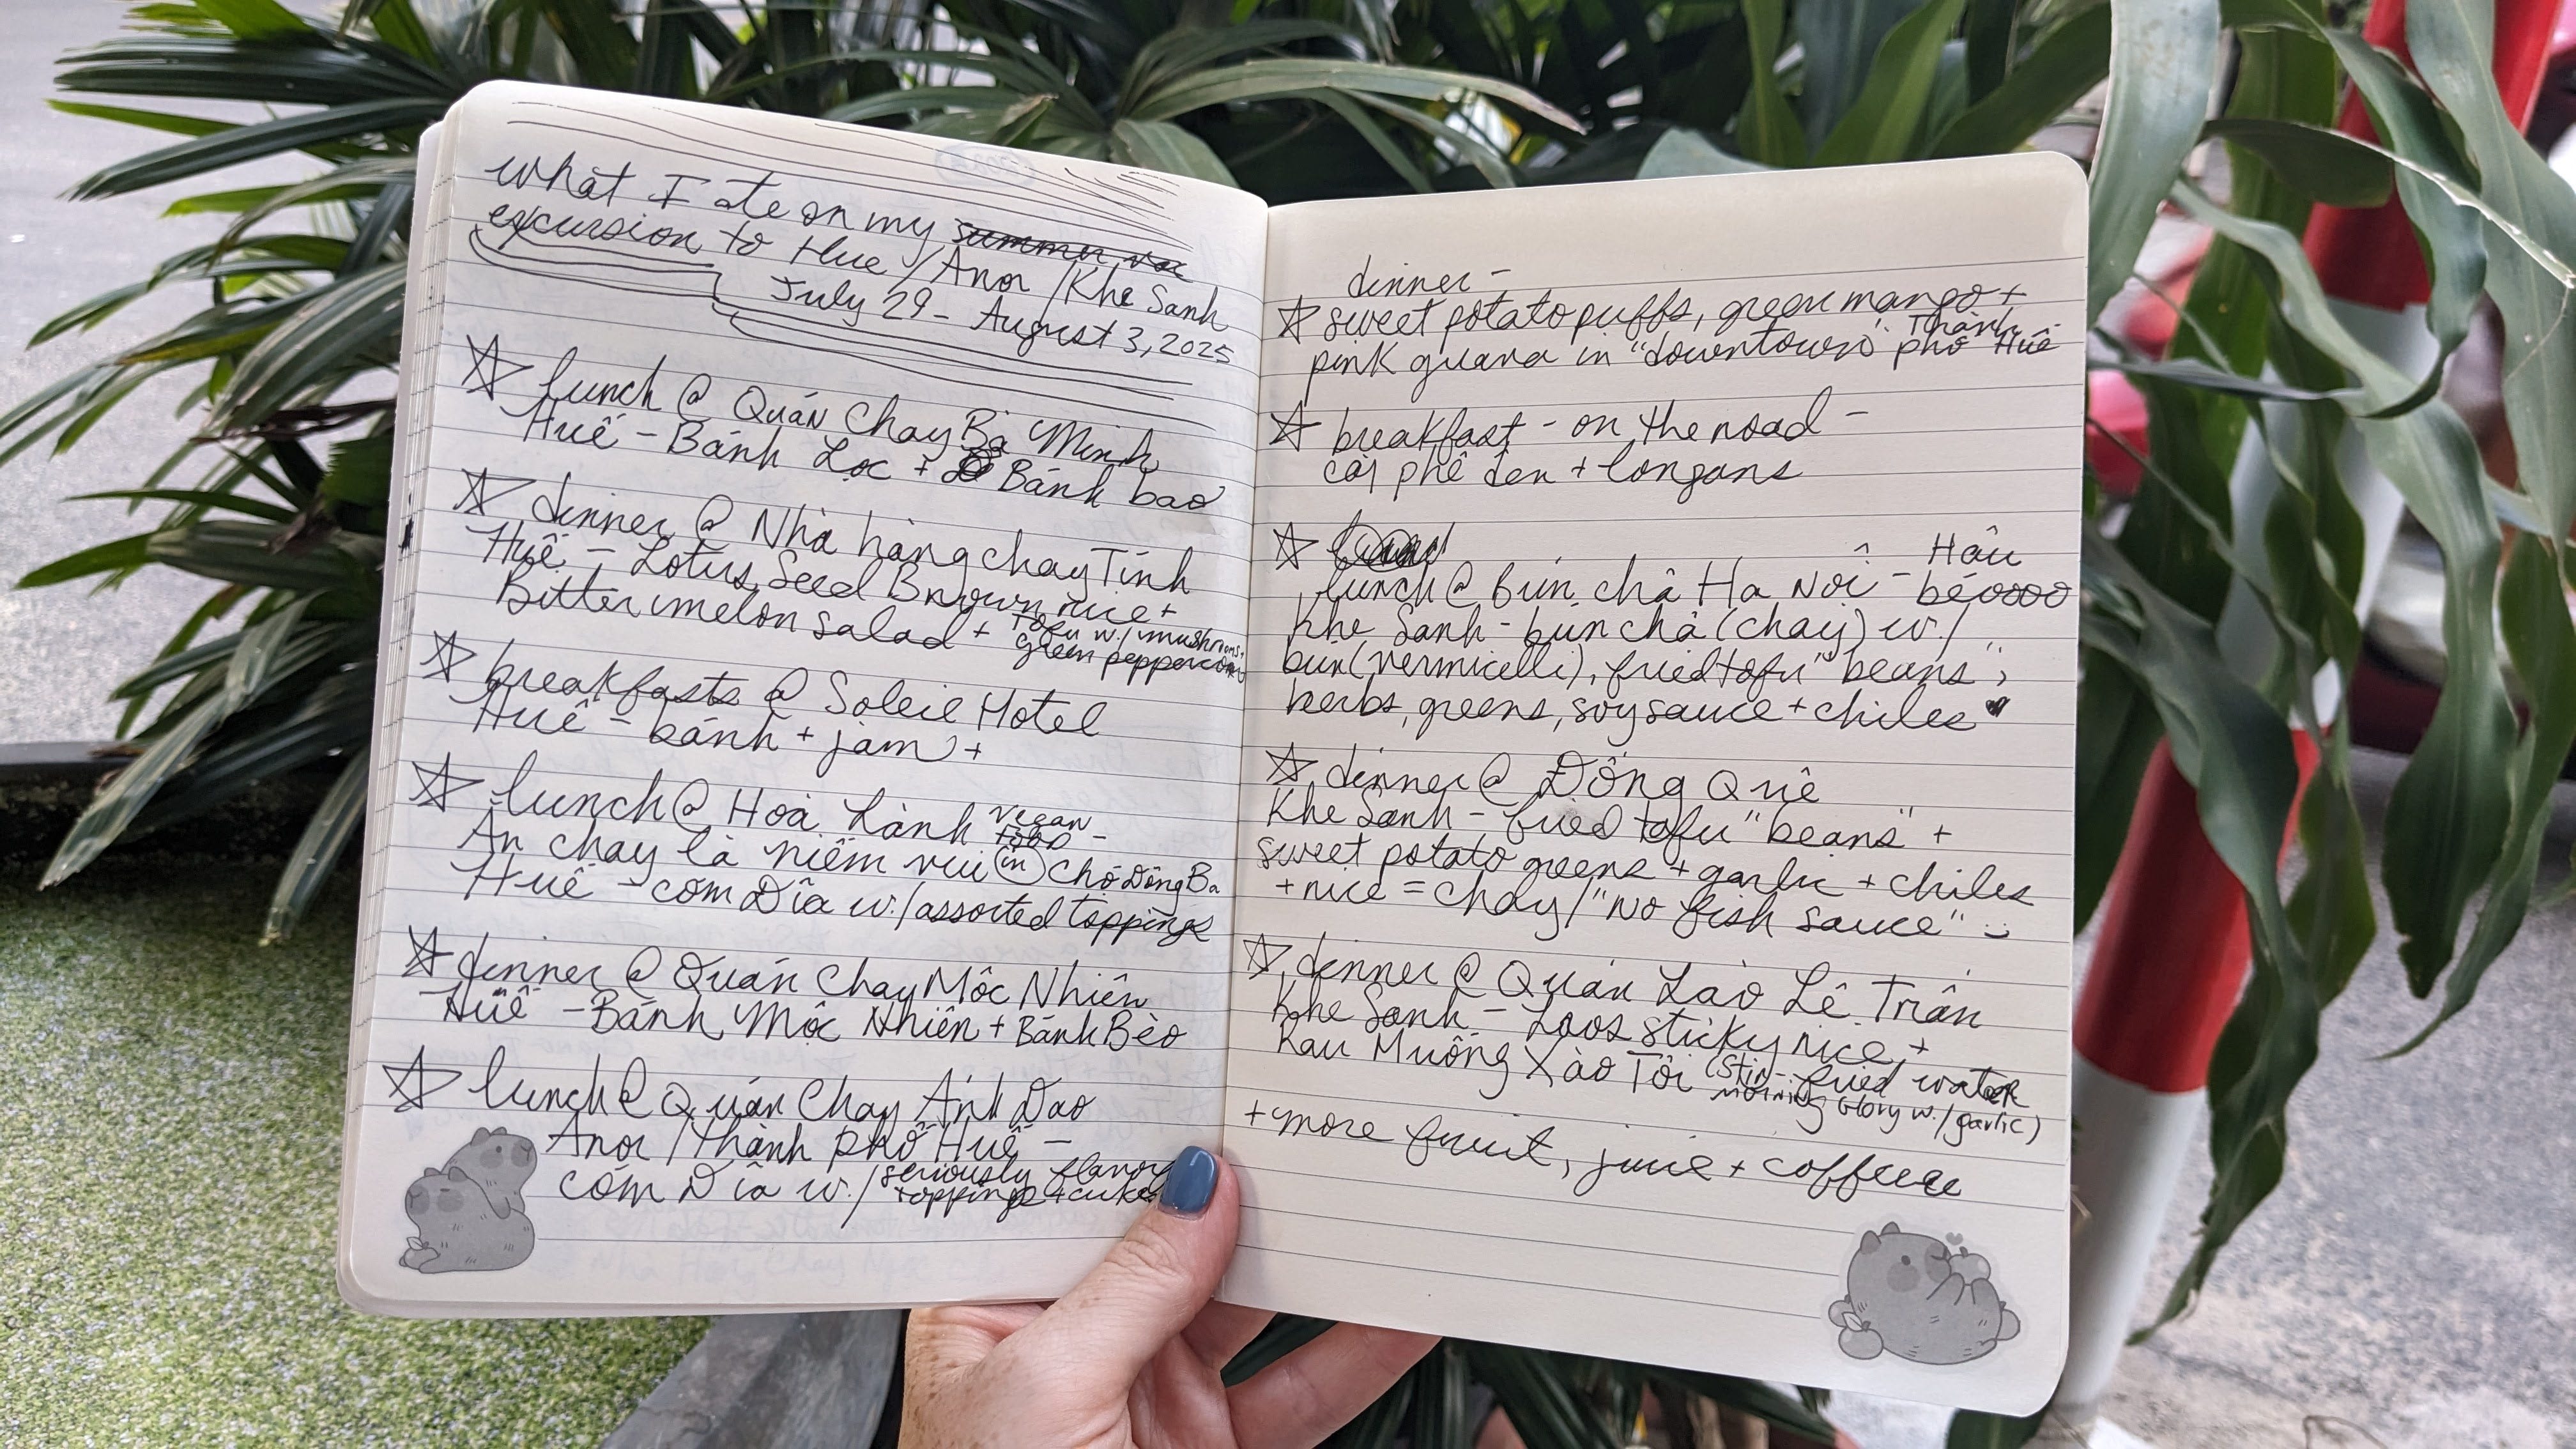 what I ate on my summer vac
excursion to Hue / Anor / Khe Sanh
July 29 - August 3, 2025
lunch @ Quán Chay Bà Minh
Huế - Bánh Lọc + Bánh bao
dinner @ Nhà hàng chay Tịnh
Huế - Lotus Seed Brown rice +
Bitter melon salad + tofu w./ mushrooms +
green peppercorn
breakfasts @ Soleil Hotel
Huê - bánh + jam +
lunch @ Hoà Lành vegan
food -
Ăn chay là niềm vui in Chợ Đông Ba
Huê - cơm Dĩa w./ assorted toppings
dinner @ Quán Chay Mộc Nhiên
Huê - Bánh Mộc Nhiên + Bánh Bèo
lunch @ Quán Chay Ánh Dao
Anor / thành phố Huê -
cơm Dĩa w./ seriously flavory
toppings + cukes
dinner -
sweet potato puffs, green mango +
pink guava in "downtown" Thành
phô Huê
breakfast - on the road -
cà phê đen + longans
lunch @ bún chả Ha Nôi - Hâu
béoooo
Khe Sanh - bún chả (chay) w./
bún (vermicelli), fried tofu "beans",
herbs, greens, soy sauce + chiles ♥
dinner @ Đông Quê
Khe Sanh - fried tofu "beans" +
sweet potato greens + garlic + chiles
+ rice = chay / "no fish sauce" :)
dinner @ Quán Lào Lê Trân
Khe Sanh - Laos sticky rice +
Rau Muông Xào Tỏi (stir-fried water
morning glory w./ garlic)
+ more fruit, juice + coffeeee